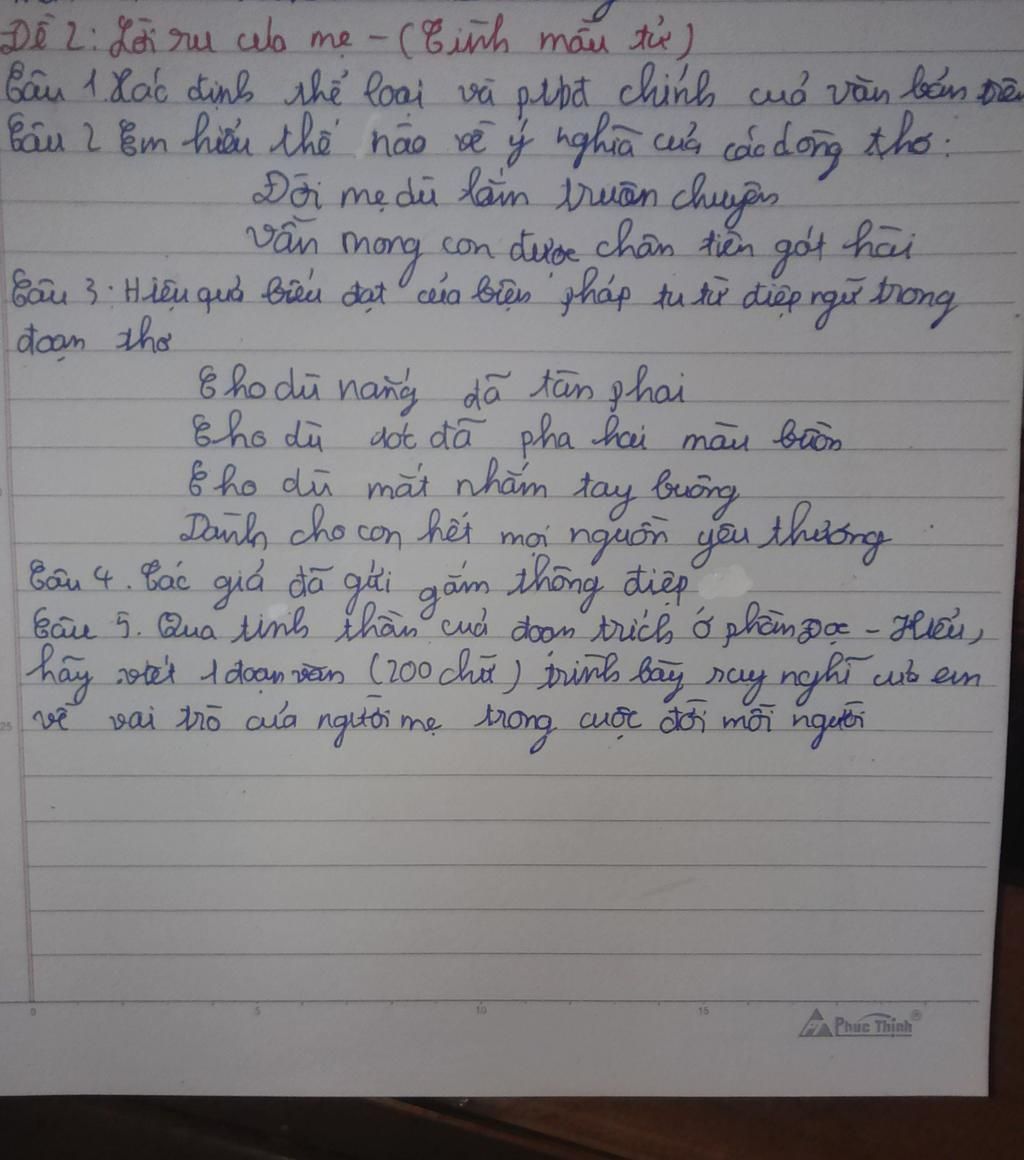 Đề 2: Lời ru của mẹ - (Tình mẫu tử)
Câu 1. Xác định thể loại và ptbđ chính của văn bản trên
Câu 2 Em hiểu thế nào về ý nghĩa của các dòng thơ:
Đời mẹ dù lắm truân chuyên
Vẫn mong con được chân tiên gót hài
Câu 3: Hiệu quả biểu đạt của biện pháp tu từ điệp ngữ trong
đoạn thơ
Cho dù nắng đã tàn phai
Cho dù đã pha hai màu buồn
Cho dù mắt nhắm tay buông
Dành cho con hết mọi nguồn yêu thương
Câu 4. Tác giả đã gửi gắm thông điệp
Câu 5. Qua tinh thần của đoạn trích ở phần Đọc - Hiểu,
hãy viết 1 đoạn văn (200 chữ) trình bày suy nghĩ của em
về vai trò của người mẹ trong cuộc đời mỗi người
25
0 5 10 15
Phuc Thinh®